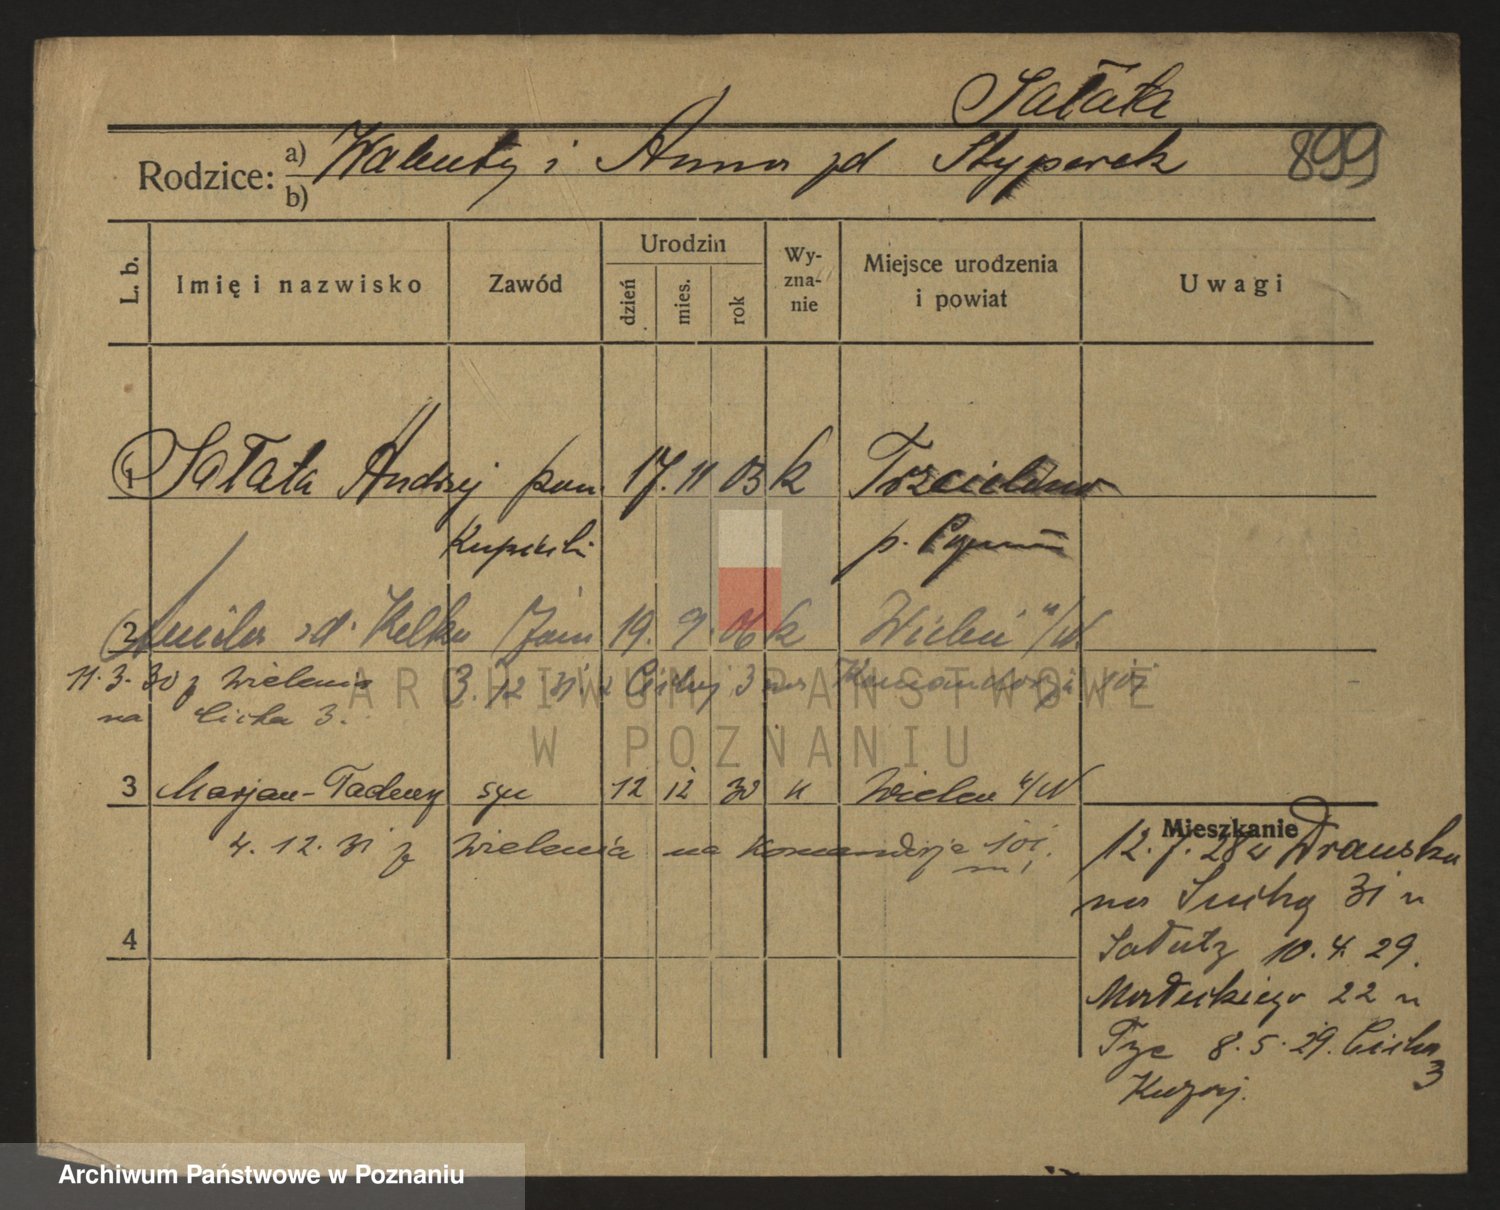 Sałata
Rodzice: a) Walenty i Anna zd Styperek 899
b)
L. b. Imię i nazwisko Zawód Urodzin Wy-
zna-
nie Miejsce urodzenia
i powiat Uwagi
dzień mies. rok
1 Sałata Andrzej pom. 17. 11 03 k Trzcielino
Kupiecki p.
2 zd. 19. 9. 06 k Wieleń n/N
11. 3. 30 z Wielenia 3. 12 31 z Cichej 3 na
na Cicha 3.
ARCHIWUM PAŃSTWOWE
W POZNANIU
3 Marjan-Tadeusz syn 12 12 30 k Wieleń n/N
4. 12. 31 z Wielenia na
Mieszkanie
12. 7. 28 z Drawska
na 31 u
Sałaty 10. 4. 29.
Małeckiego 22 u
8. 5. 29. Cicha
3
4
Archiwum Państwowe w Poznaniu